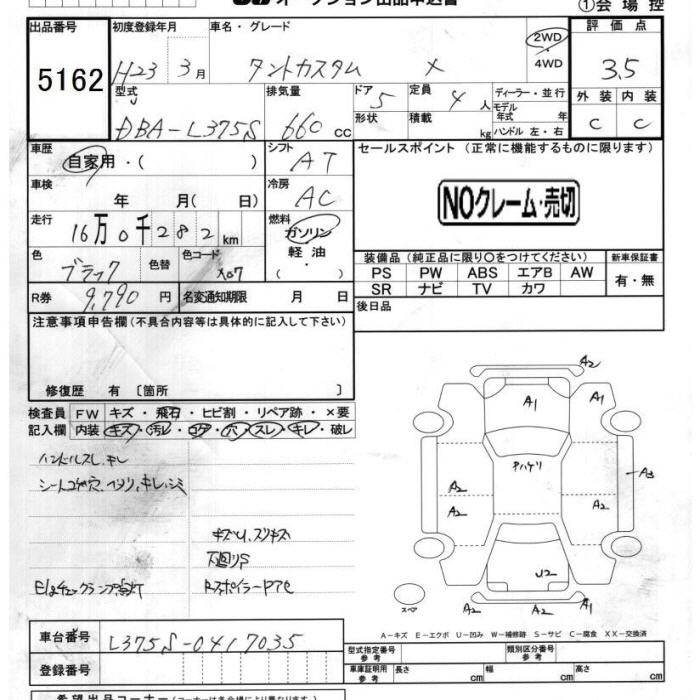 オークション出品申込書
①会場控
出品番号 初度登録年月 車名・グレード 評価点
5162 H23 3月 タントカスタム X 2WD・4WD 3.5
型式 排気量 ドア 定員 ディーラー・並行 外装 内装
DBA-L375S 660 cc 5 4人 モデル年式 年 C C
形状 積載 kg ハンドル 左・右
車歴 シフト セールスポイント (正常に機能するものに限ります)
自家用・( ) AT
車検 冷房
年 月( 日) AC NOクレーム・売切
走行 燃料
16万0千282km ガソリン・軽油・( )
色 色替 色コード 装備品 (純正品に限り○をつけてください) 新車保証書
ブラック X07 PS PW ABS エアB AW 有・無
SR ナビ TV カワ
R券 9,790円 名変通知期限 月 日 後日品
注意事項申告欄 (不具合内容等は具体的に記入して下さい)
修復歴 有 [箇所 ]
検査員 FW キズ・飛石・ヒビ割・リペア跡・×要
記入欄 内装 キズ・汚レ・コゲ・穴・スレ・キレ・破レ
ハンドルスレ、キレ
キズU、スリキズ
下回りS
A2
A1 A1
A2 A2
A2 A2
A3
U2
A2 A2
スペア
A-キズ E-エクボ U-凹み W-補修跡 S-サビ C-腐食 XX-交換済
車台番号 L375S-0417035
型式指定番号 参考 類別区分番号 参考
登録番号 車庫証明用 参考 長さ cm 幅 cm 高さ cm
希望出品コーナー